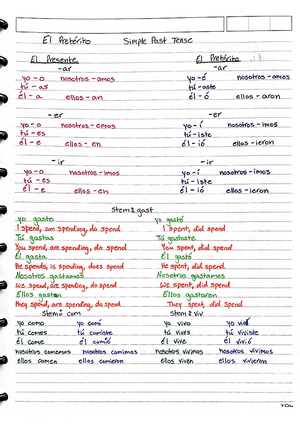 El Pretérito     Simple Past Tense
El Presente     El Pretérito
-ar     -ar
yo - o     nosotros - amos     yo - é     nosotros - amos
tú - as     tú - aste
él - a     ellos - an     él - ó     ellos - aron
- er     - er
yo - o     nosotros - emos     yo - í     nosotros - imos
tú - es     tú - iste
él - e     ellos - en     él - ió     ellos - ieron
- ir     - ir
yo - o     nosotros - imos     yo - í     nosotros - imos
tú - es     tú - iste
él - e     ellos - en     él - ió     ellos - ieron
Stem: gast
yo gasto     yo gasté
I spend, am spending, do spend     I spent, did spend
Tú gastas     Tú gastaste
You spend, are spending, do spend     You spent, did spend
Él gasta     Él gastó
He spends, is spending, does spend     He spent, did spend
Nosotros gastamos     Nosotros gastamos
We spend, are spending, do spend     We spent, did spend
Ellos gastan     Ellos gastaron
They spend, are spending, do spend     They spent, did spend
Stem: com     Stem: viv
yo como     yo comí     yo vivo     yo viví
tú comes     tú comiste     tú vives     tú viviste
él come     él comió     él vive     él vivió
nosotros comemos     nosotros comimos     nosotros vivimos     nosotros vivimos
ellos comen     ellos comieron     ellos viven     ellos vivieron